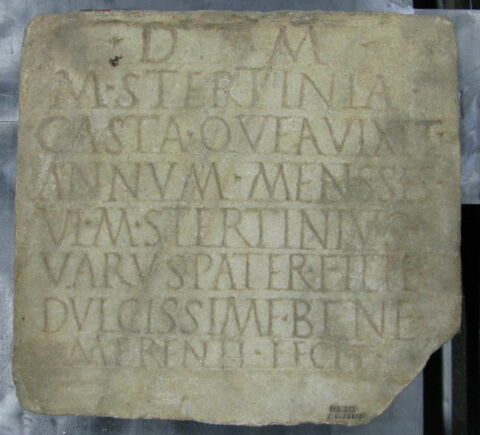 D M
M·STERTINIA
CASTA·QVEAVIXIT·
ANNVM·MENSSES
VI·M·STERTINIVS
VARVSPATER·FILIE
DVLCISSIME·BENE
MERENTI·FECIT